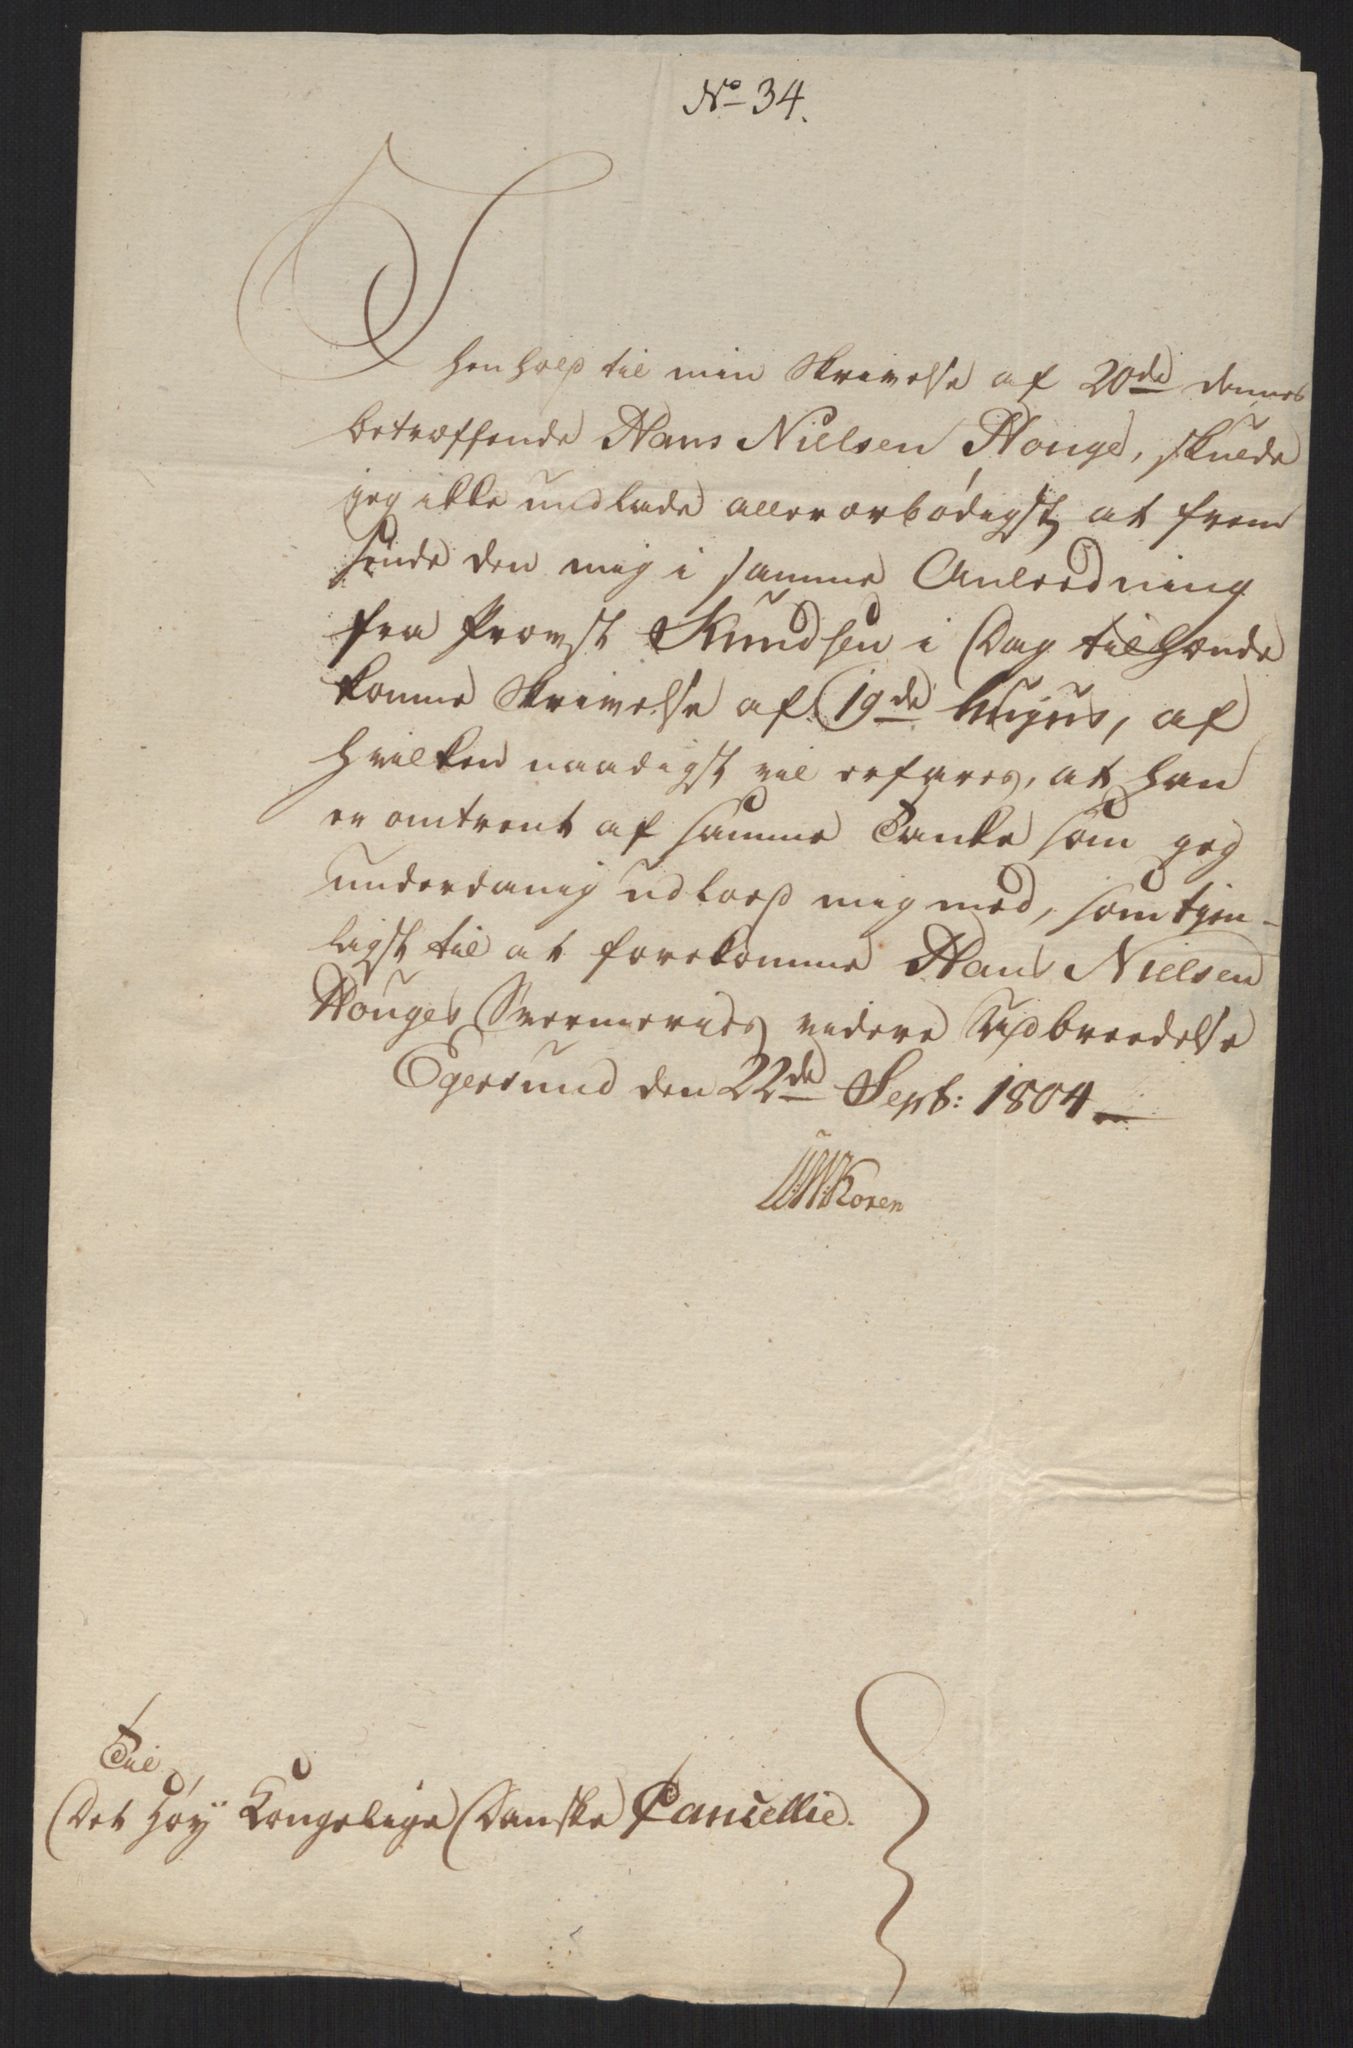 No 34.
I
henhold til min Skrivelse af 20de dennes
betræffende Hans Nielsen Houge, skulde
jeg ikke undlade allerærbødigst at frem
sende den mig i samme Anledning
fra Provst Knudsen i Dag tilhænde
komne Skrivelse af 19de hujus, af
hvilken naadigst vil erfares, at han
er omtrent af samme Tanke som jeg
underdanig udlod mig med, som tjen-
ligst til at forekomme Hans Nielsen
Houges Sværmeries videre Udbreedelse
Egersund den 22de Septb: 1804
Koren
Til
Det Høy Kongelige Danske Cancellie.